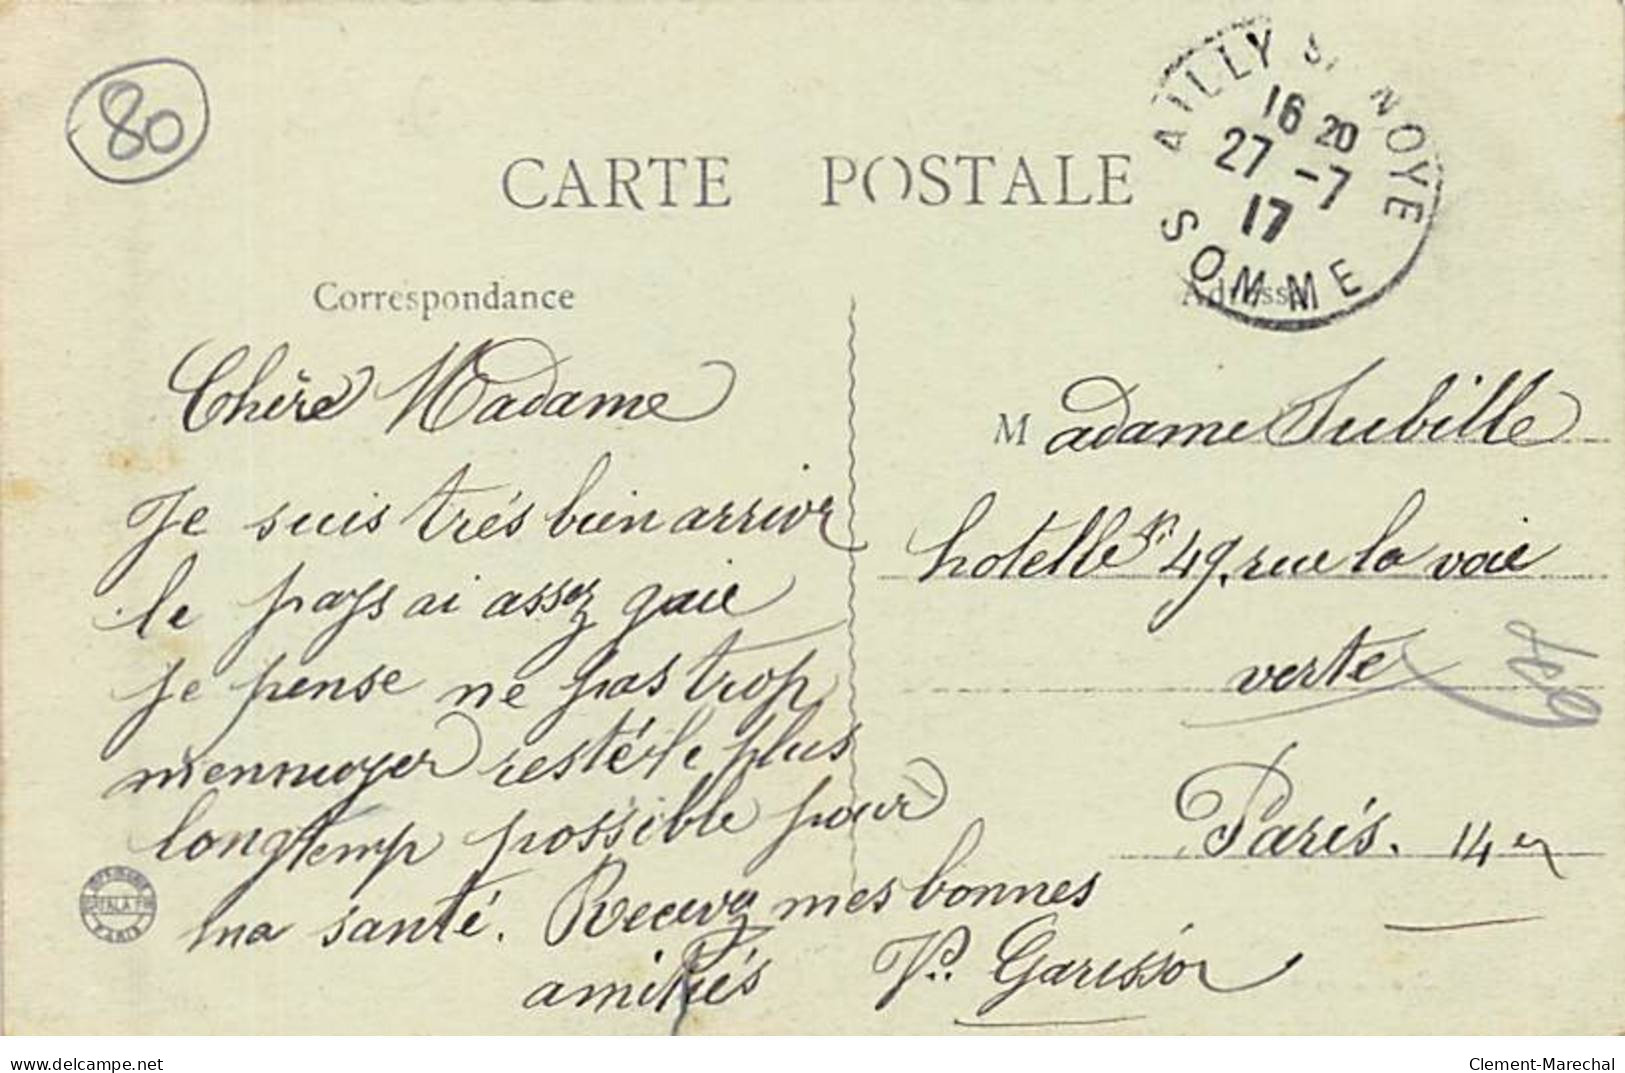 80
CARTE POSTALE
AILLY S. NOYE
16 20
27 -7
17
SOMME
Correspondance
Adresse
Chère Madame
Je suis très bien arrivé
le pays ai assez gaie
je pense ne pas trop
m'ennuoyer resté le plus
longtemp possible pour
ma santé. Recevez mes bonnes
amitiés
Garisson
M adame Subille
hotelle 49, rue la voie
verte
Paris. 14
PARIS
delcampe.net
Clement-Marechal